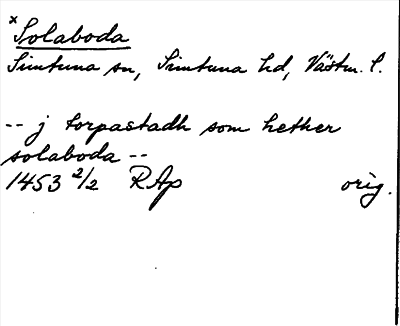 x Solaboda
Simtuna sn, Simtuna hd, Västm. l.
-- j torpastadh som hether
solaboda --
1453 2/2 RAp orig.